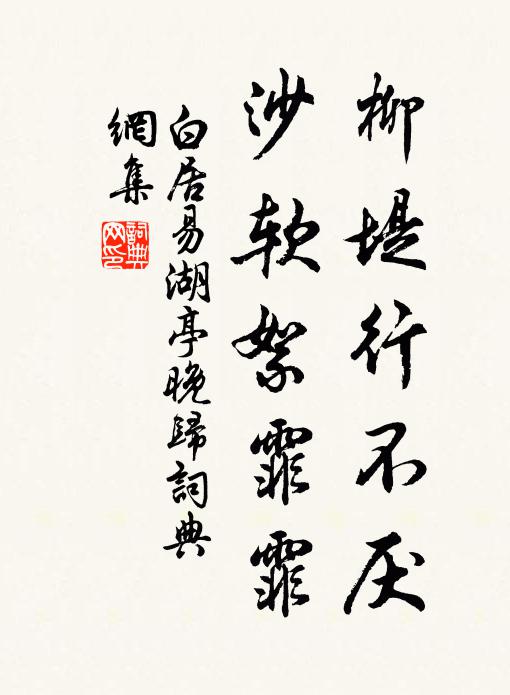 柳堤行不厌
沙软絮霏霏
白居易湖亭晚歸詞典
網集
詞典
网印